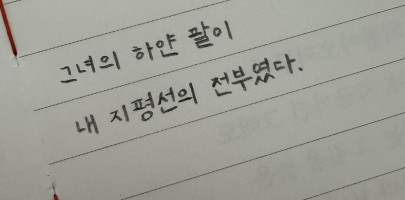 그녀의 하얀 팔이
내 지평선의 전부였다.